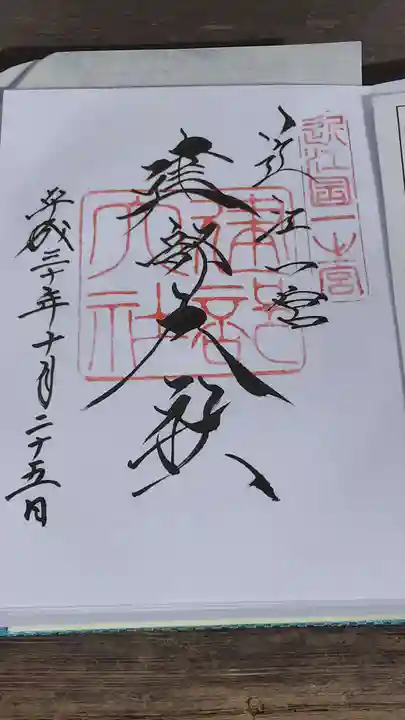 近江国一之宮
近江一宮
建部大社
建部大社
平成三十年十月二十五日